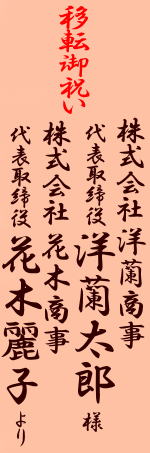 移転御祝い
株式会社 洋蘭商事
代表取締役 洋蘭太郎 様
株式会社 花木商事
代表取締役 花木麗子 より